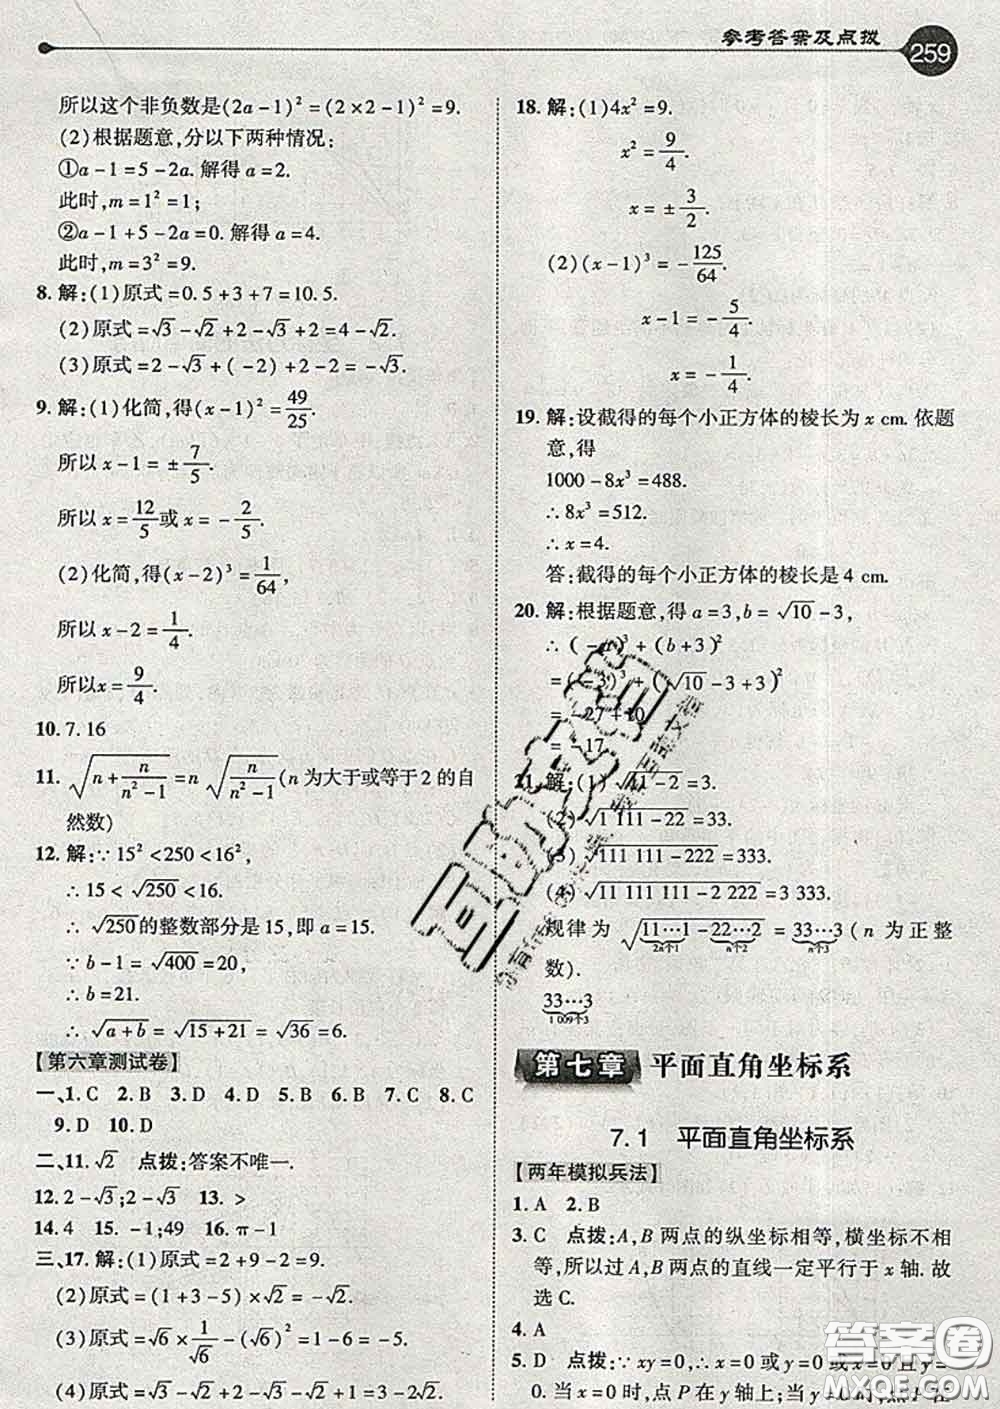 参考答案及点拨 259
所以这个非负数是(2a-1)²=(2×2-1)²=9.
(2)根据题意,分以下两种情况:
①a-1=5-2a.解得a=2.
此时,m=1²=1;
②a-1+5-2a=0.解得a=4.
此时,m=3²=9.
8.解:(1)原式=0.5+3+7=10.5.
(2)原式=√3-√2+2-√3+2=4-√2.
(3)原式=2-√3+(-2)+2-2=-√3.
9.解:(1)化简,得(x-1)²=49/25.
所以x-1=±7/5.
所以x=12/5或x=-2/5.
(2)化简,得(x-2)³=1/64,
所以x-2=1/4.
所以x=9/4.
10.7.16
11.√(n+n/(n²-1))=n√(n/(n²-1))(n为大于或等于2的自
然数)
12.解:∵15²<250<16²,
∴15<√250<16.
∴√250的整数部分是15,即a=15.
∵b-1=√400=20,
∴b=21.
∴√(a+b)=√(15+21)=√36=6.
【第六章测试卷】
一、1.C 2.B 3.D 4.D 5.B 6.B 7.C 8.C
9.D 10.D
二、11.√2 点拨:答案不唯一.
12.2-√3;2-√3 13.>
14.4 15.-1;49 16.π-1
三、17.解:(1)原式=2+9-2=9.
(2)原式=(1+3-5)×√2=-√2.
(3)原式=√6×1/√6-(√6)²=1-6=-5.
(4)原式=-8+√2-1+1=√2-8.
18.解:(1)4x²=9.
x²=9/4.
x=±3/2.
(2)(x-1)³=-125/64.
x-1=-5/4.
x=-1/4.
19.解:设截得的每个小正方体的棱长为x cm.依题
意,得
1000-8x³=488.
∴8x³=512.
∴x=4.
答:截得的每个小正方体的棱长是4 cm.
20.解:根据题意,得a=3,b=√10-3,
∴(-a)³+(b+3)²
=(-3)³+(√10-3+3)²
=-27+10
=-17.
21.解:(1)√(11-2)=3.
(2)√(1 111-22)=33.
(3)√(111 111-222)=333.
(4)√(11 111 111-2 222)=3 333.
规律为√(11…1-22…2)=33…3(n为正整
2n个1 n个2 n个3
数).
33…3
1 009个3
第七章 平面直角坐标系
7.1 平面直角坐标系
【两年模拟兵法】
1.A 2.B
3.C 点拨:A,B两点的纵坐标相等,横坐标不相
等,所以过A,B两点的直线一定平行于x轴.故
选C.
4.A
5.D 点拨:∵xy=0,∴x=0或y=0或x=0且y=
0.当x=0时,点P在y轴上;当y=0时,点P在
答案圈
MXQE.COM